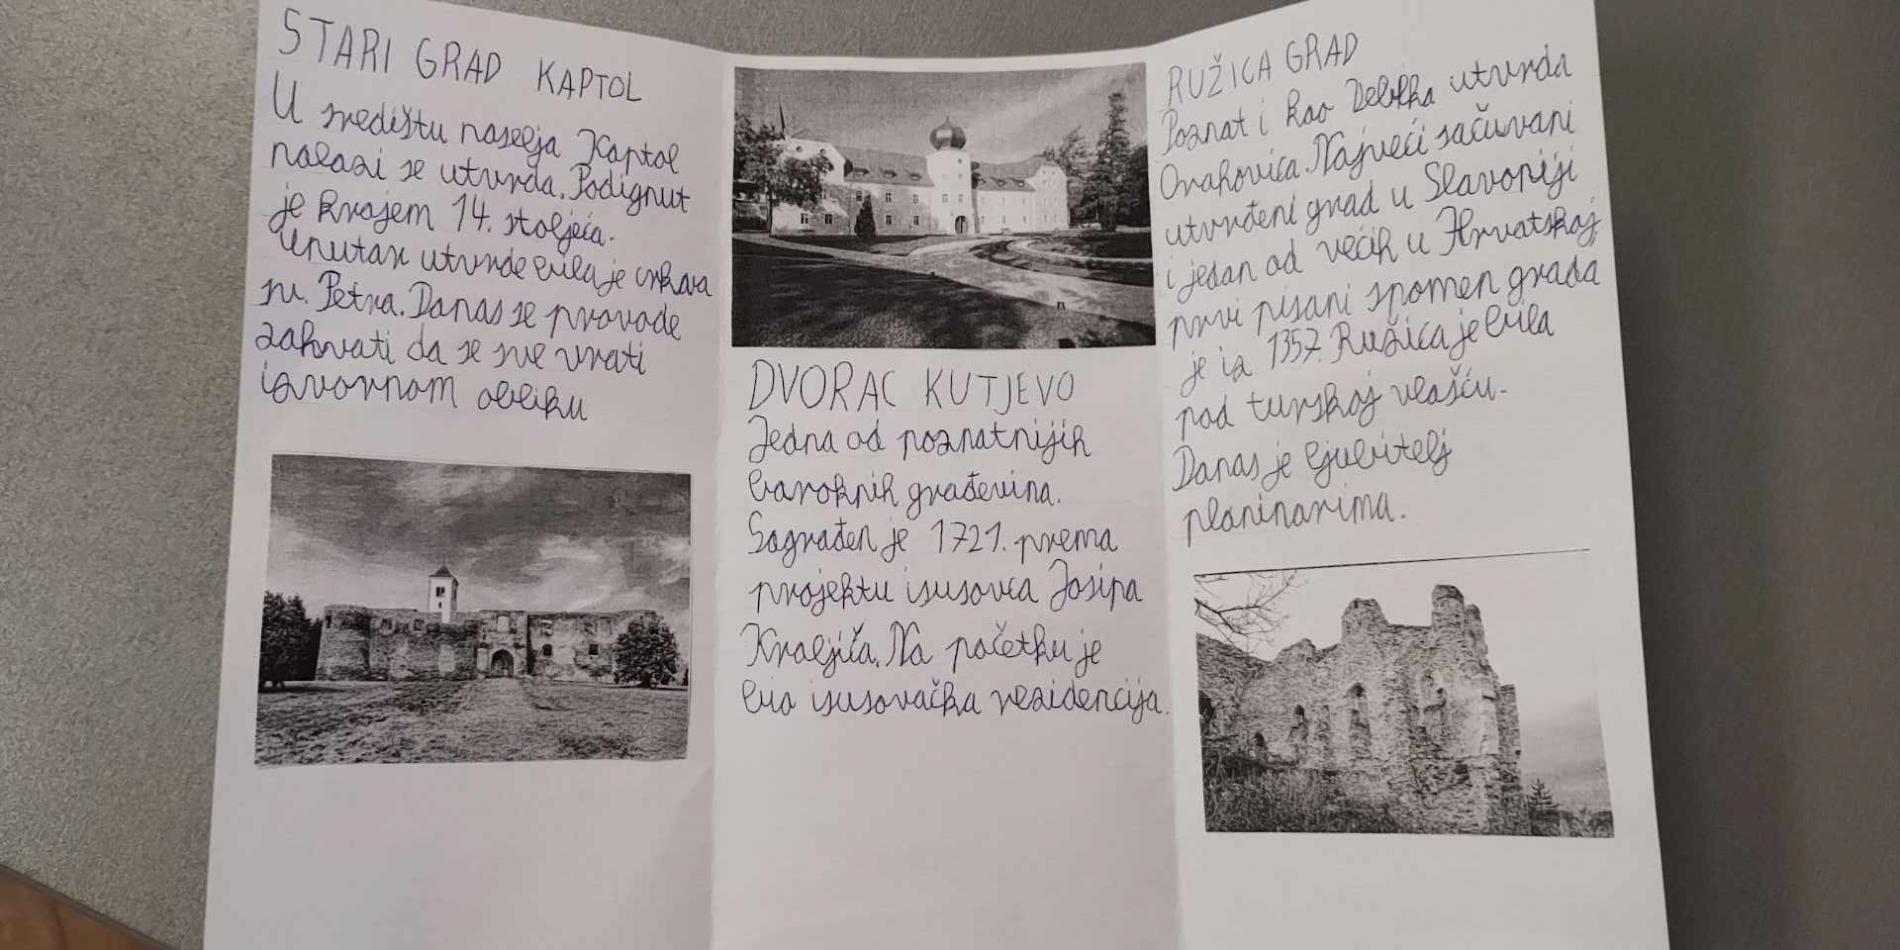 STARI GRAD KAPTOL
U središtu naselja Kaptol
nalazi se utvrda. Podignut
je krajem 14. stoljeća.
Unutar utvrde bila je crkva
sv. Petra. Danas se provode
zahvati da se sve vrati
izvornom obliku
DVORAC KUTJEVO
Jedna od poznatnijih
baroknih građevina.
Sagrađen je 1721. prema
projektu isusovca Josipa
Kraljića. Na početku je
bio isusovačka rezidencija.
RUŽICA GRAD
Poznat i kao utvrda
Orahovica. Najveći sačuvani
utvrđeni grad u Slavoniji
i jedan od većih u Hrvatskoj,
prvi pisani spomen grada
je iz 1357. Ružica je bila
pod turskoj vlašću.
Danas je ljubitelj
planinarima.